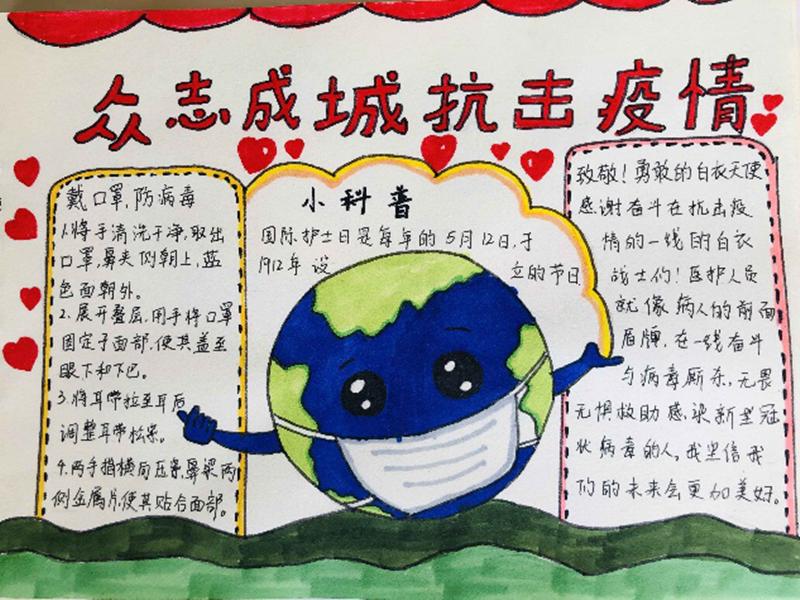 众志成城抗击疫情
戴口罩,防病毒
1.将手清洗干净,取出
口罩,鼻夹侧朝上,蓝
色面朝外。
2.展开叠层,用手将口罩
固定于面部,使其盖至
眼下和下巴。
3.将耳带拉至耳后
调整耳带松紧。
4.两手指横向压紧鼻梁两
侧金属片,使其贴合面部。
小科普
国际护士日是每年的5月12日,于
1912年 设 立的节日
致敬!勇敢的白衣天使
感谢奋斗在抗击疫
情的一线的白衣
战士们!医护人员
就像病人的前面
盾牌,在一线奋斗
与病毒厮杀,无畏
无惧救助感染新型冠
状病毒的人,我坚信我
们的未来会更加美好。